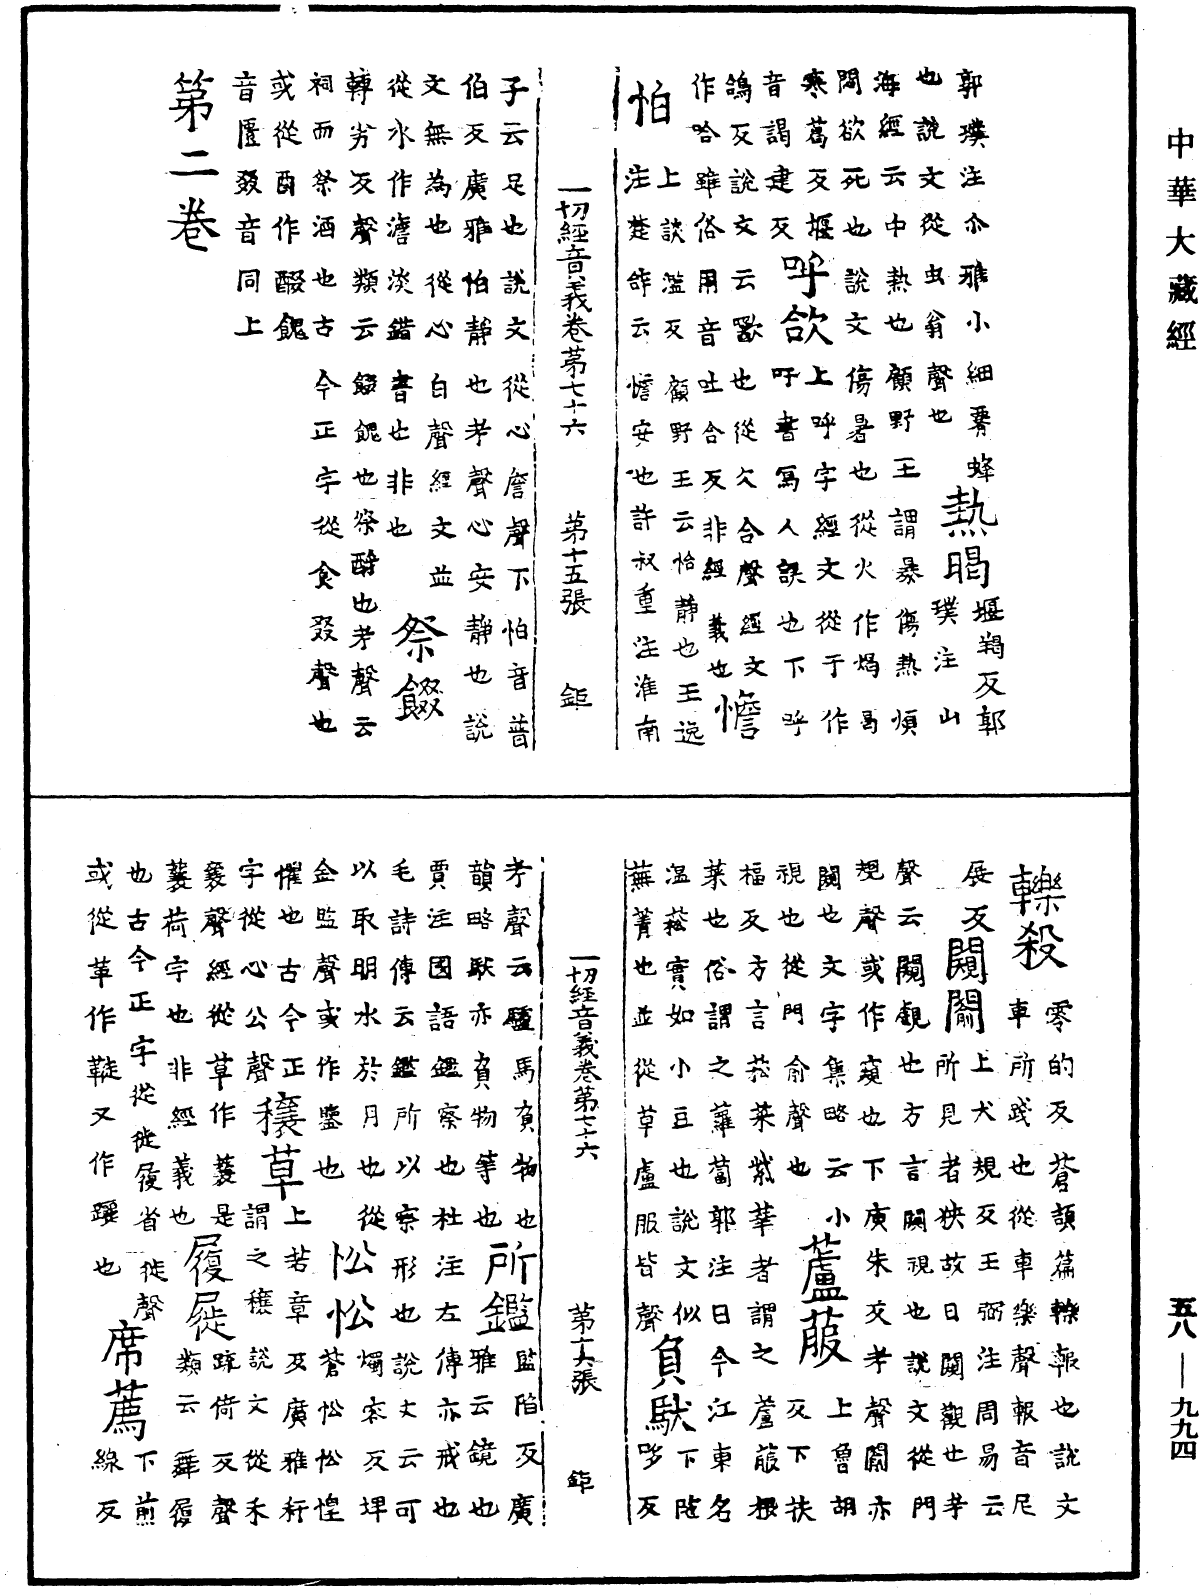 中華大藏經
郭璞注尒雅小細𦝫蜂
也說文從虫翁聲也
熱暍堰羯反郭璞注山
海經云中熱也顧野王謂暴傷熱煩
悶欲死也說文傷暑也從火作煬曷
寒葛反堰音謁建反
呼欱上呼字經文從于作吁書寫人誤也下呼
鴿反說文云歠也從欠合聲經文
作哈雖俗用音吐合反非經義也
憺怕上談濫反顧野王云恬靜也王逸
注楚辝云憺安也許叔重注淮南
一切經音義卷第七十六 第十五張 鉅
子云足也說文從心詹聲下怕音普
伯反廣雅怕靜也考聲心安靜也說
文無為也從心白聲經文並
從水作澹淡錯書也非也
祭餟
轉劣反聲類云餟餽也祭酹也考聲云
祠而祭酒也古今正字從食叕聲也
或從酉作醊餽
音匱叕音同上
第二卷
轢殺零的反蒼頡篇轢報也說文
車所踐也從車樂聲報音尼
展反
闚闟上犬規反王弼注周易云
所見者狹故曰闚觀也考
聲云闚覰也方言闚視也說文從門
規聲或作窺也下庾朱反考聲闟亦
闚也文字集略云小
視也從門俞聲也
蘆菔上魯胡反下扶
福反方言菘菜紫華者謂之蘆菔根
萊也俗謂之蘿蔔郭注曰今江東名
温菘實如小豆也說文似
蕪菁也並從草盧服皆聲
負馱下陁哆反
一切經音義卷第七十六 第十六張 鉅
考聲云驢馬負物也
韻略馱亦負物等也
所鑑監陷反廣雅云鏡也
賈注國語鑑察也杜注左傳亦戒也
毛詩傳云鑑所以察形也說文云可
以取明水於月也從
金監聲或作鑒也
燭容反埤
忪忪蒼忪忪惶
懼也古今正
字從心公聲
穰草上若章反廣雅秆謂之穰說文從禾
襄聲經從草作蘘是
蘘荷字也非經義也
履屣踈倚反聲類云舞履
也古今正字從徙履省徙聲
或從革作鞑又作躧也
席薦下煎線反
五八—九九四